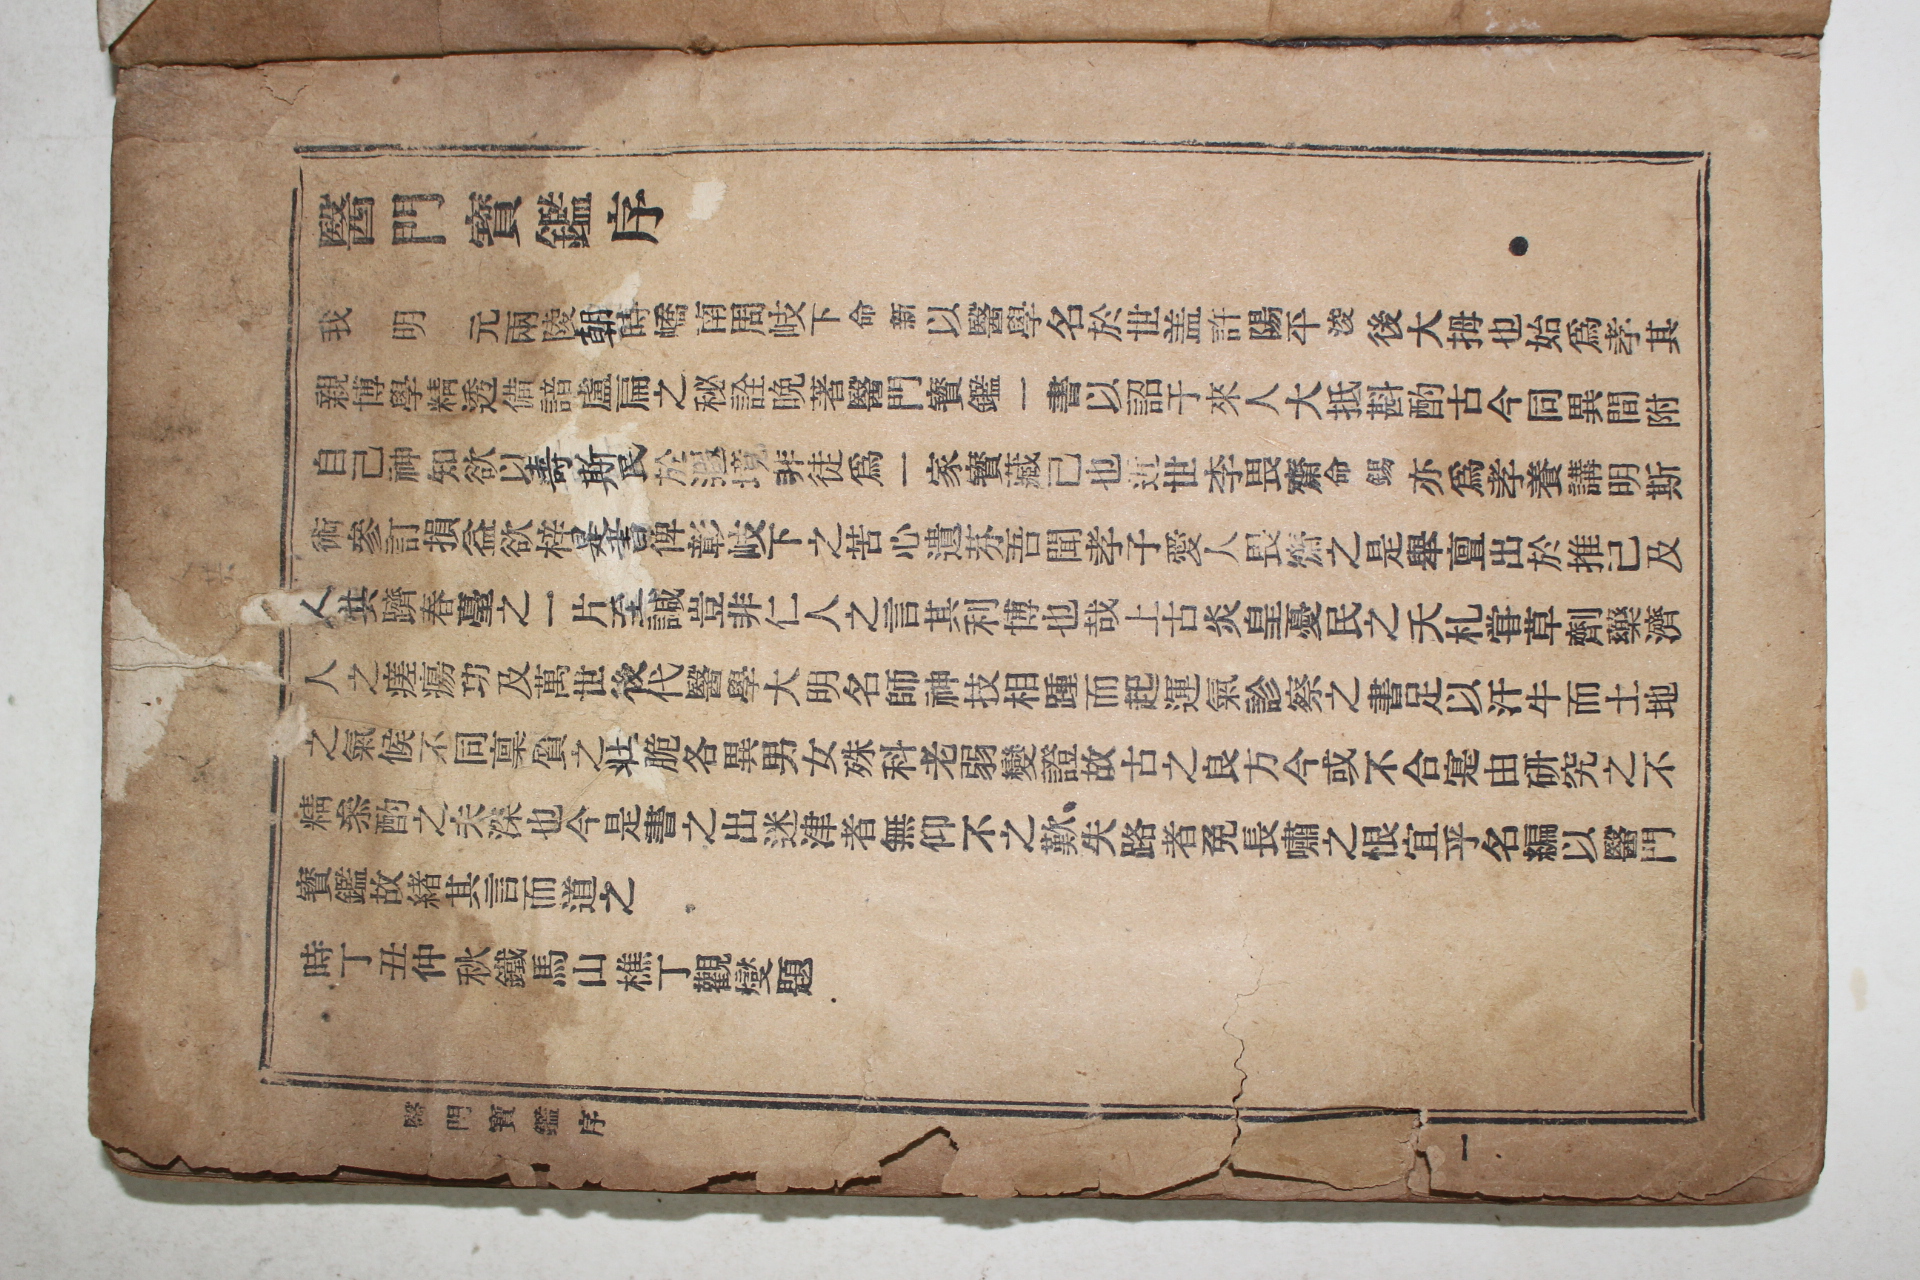 醫門寶鑑序
我 明 元兩陵朝時嶠南周岐下命新以醫學名於世盖許陽平浚後大拇也始爲孝其
親博學精透備諳盧扁之秘詮晩著醫門寶鑑一書以詔于來人大抵斟酌古今同異間附
自己神知欲以壽斯民於遐境非徒爲一家寶藏已也近世李畏齋命錫亦爲孝養講明斯
術參訂損益欲梓是書俾彰岐下之苦心遺芬吾聞孝子愛人畏齋之是舉亶出於推己及
人共躋春臺之一片至誠豈非仁人之言其利博也哉上古炎皇憂民之夭札嘗草劑藥濟
人之瘥瘍功及萬世後代醫學大明名師神技相踵而起運氣診察之書足以汗牛而土地
之氣候不同禀質之壯脆各異男女殊科老弱變證故古之良方今或不合寔由研究之不
精叅酌之失深也今是書之出迷津者無仰不之歎失路者免長嘯之恨宜乎名編以醫門
寶鑑故緖其言而道之
時丁丑仲秋鐵馬山樵丁觀燮題
醫門寶鑑序
一